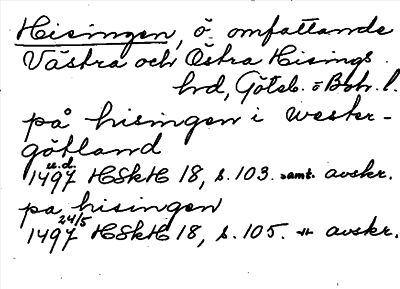 Hisingen, ö. omfattande
Västra och Östra Hisings
hd, Göteb. = Boh. l.
på hisingen i wester-
götland
u.d.
1497 HSkH 18, s. 103. samt. avskr.
pa hisingen
24/5
1497 HSkH 18, s. 105. -"- avskr.